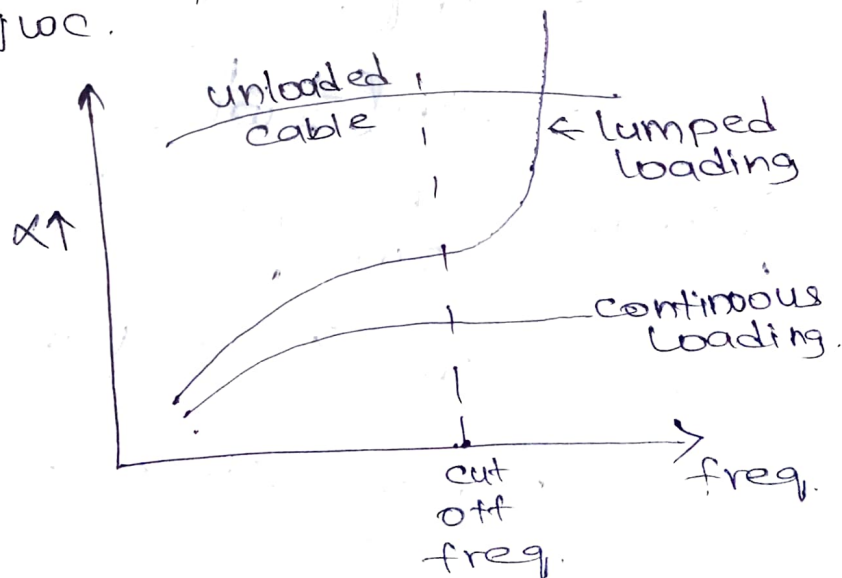 unloaded
cable
← lumped
loading
α↑
continuous
Loading.
freq.
cut
off
freq.